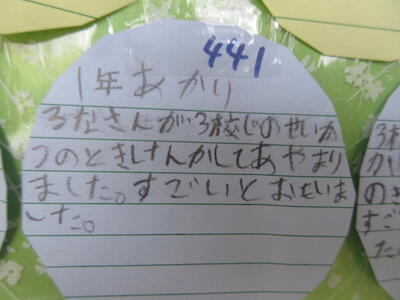 441
1年あかり
ろなさんが3校じのせいか
つのときけんかしてあやまり
ました。すごいとおもいま
した。
3校
かし
のき
すご
た。